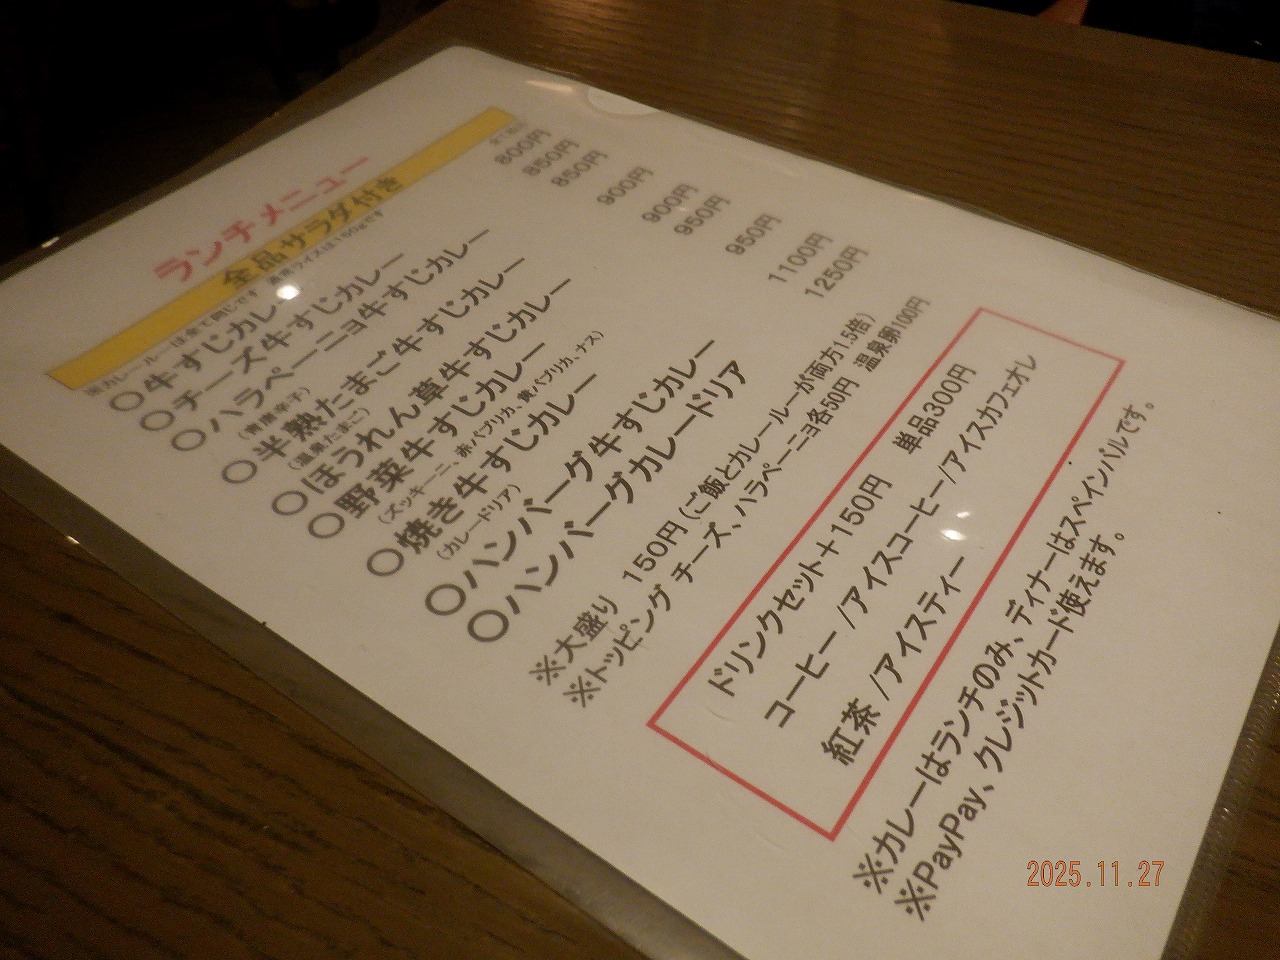 ランチメニュー
全品サラダ付き
※カレールーは全て同じです 通常ライスは150gです
○牛すじカレー 800円
○チーズ牛すじカレー 850円
○ハラペーニョ牛すじカレー 850円
(青唐辛子)
○半熟たまご牛すじカレー 900円
(温泉たまご)
○ほうれん草牛すじカレー 900円
○野菜牛すじカレー 950円
(ズッキーニ、赤パプリカ、黄パプリカ、ナス)
○焼き牛すじカレー 950円
(カレードリア)
○ハンバーグ牛すじカレー 1100円
○ハンバーグカレードリア 1250円
※大盛り 150円(ご飯とカレールーが両方1.5倍)
※トッピング チーズ、ハラペーニョ各50円 温泉卵100円
ドリンクセット+150円 単品300円
コーヒー /アイスコーヒー/アイスカフェオレ
紅茶 /アイスティー
※カレーはランチのみ、ディナーはスペインバルです。
※PayPay、クレジットカード使えます。
2025.11.27